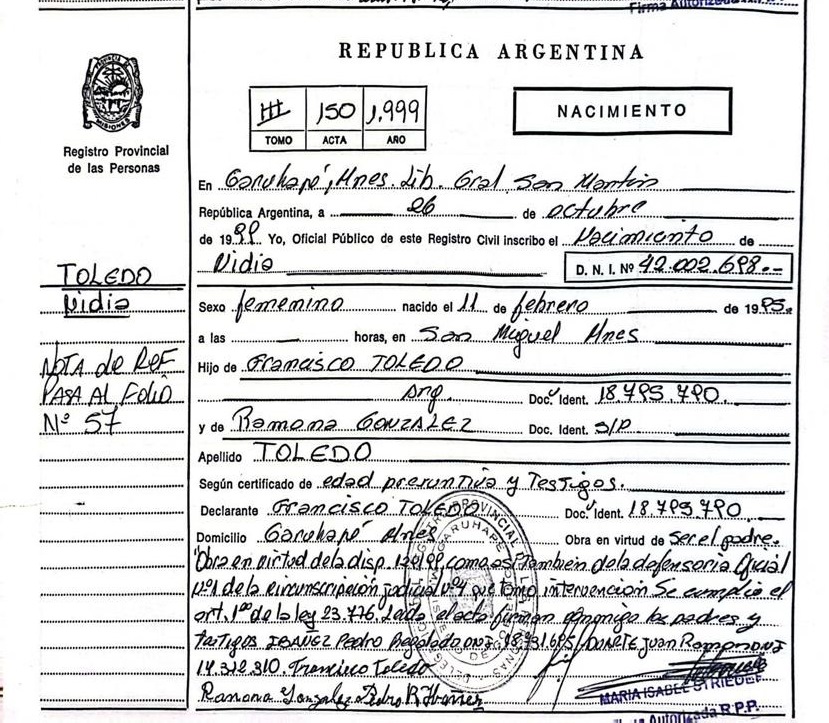 Firma Autorizada
REPUBLICA ARGENTINA
PROVINCIA DE MISIONES
Registro Provincial
de las Personas
III 150 1.999
TOMO ACTA AÑO
NACIMIENTO
En Garuhapé, Mnes. Lib. Gral San Martin
República Argentina, a 26 de octubre
de 1999 Yo, Oficial Público de este Registro Civil inscribo el Nacimiento de
Nidia D. N. I. Nº 42.002.698.-
TOLEDO
Nidia
Sexo femenino nacido el 11 de febrero de 1995.
a las — horas, en San Miguel Mnes
Hijo de Francisco TOLEDO
Arg. Doc. Ident. 18.795.790.
y de Ramona GONZALEZ Doc. Ident. S/D
NOTA de REF
PASA AL FOLIO
Nº 57
Apellido TOLEDO
Según certificado de edad presuntiva y Testigos.
Declarante Francisco TOLEDO Doc. Ident. 18.795.790
Domicilio Garuhapé Mnes Obra en virtud de ser el padre.
Obra en virtud de la disp. como así también de la defensoria Oficial
Nº1 de la circunscripción judicial Nº4 que tomo intervención Se cumplio el
art. 1º de la ley 23.776. Leida el acta firman conmigo los padres y
Testigos IBAÑEZ Pedro DNI DUARTE Juan Ramon DNI
14.312.310. Francisco Toledo
Ramona Gonzalez Pedro R Ibañez
MARIA ISABEL STRIEDER
Autorizada R.P.P.